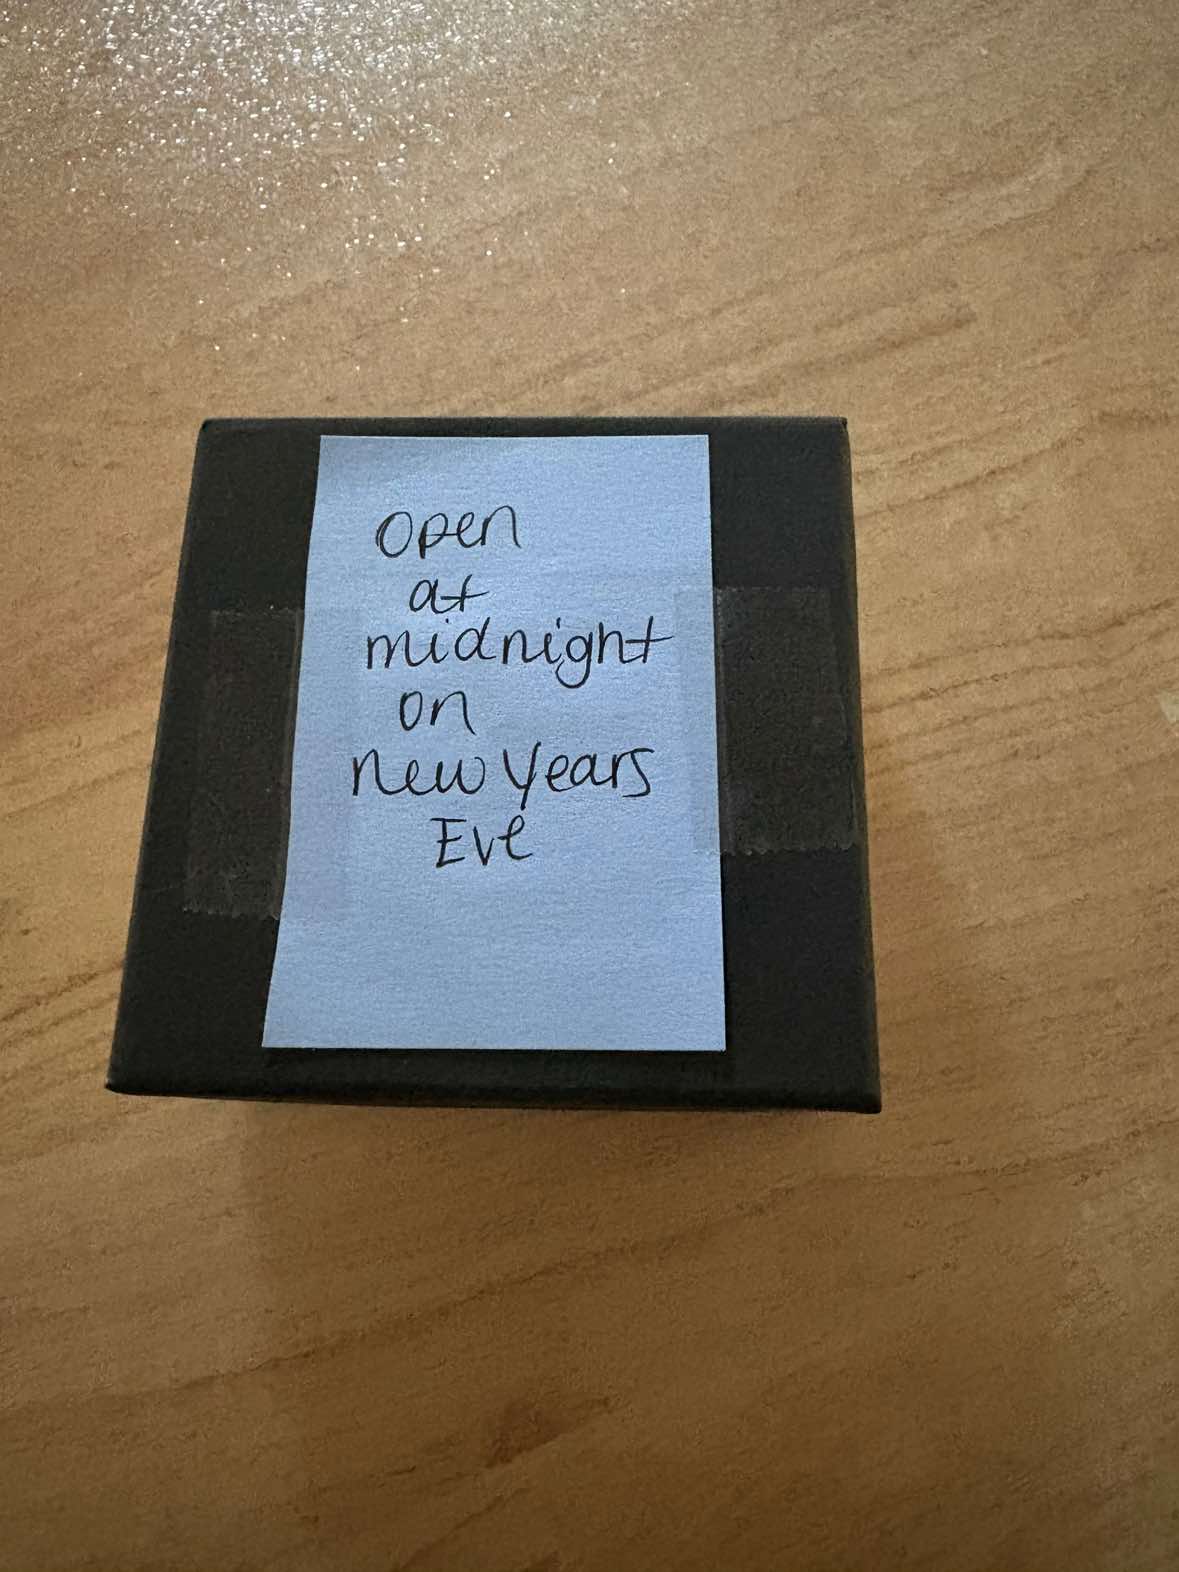 Open
at
midnight
on
New Years
Eve